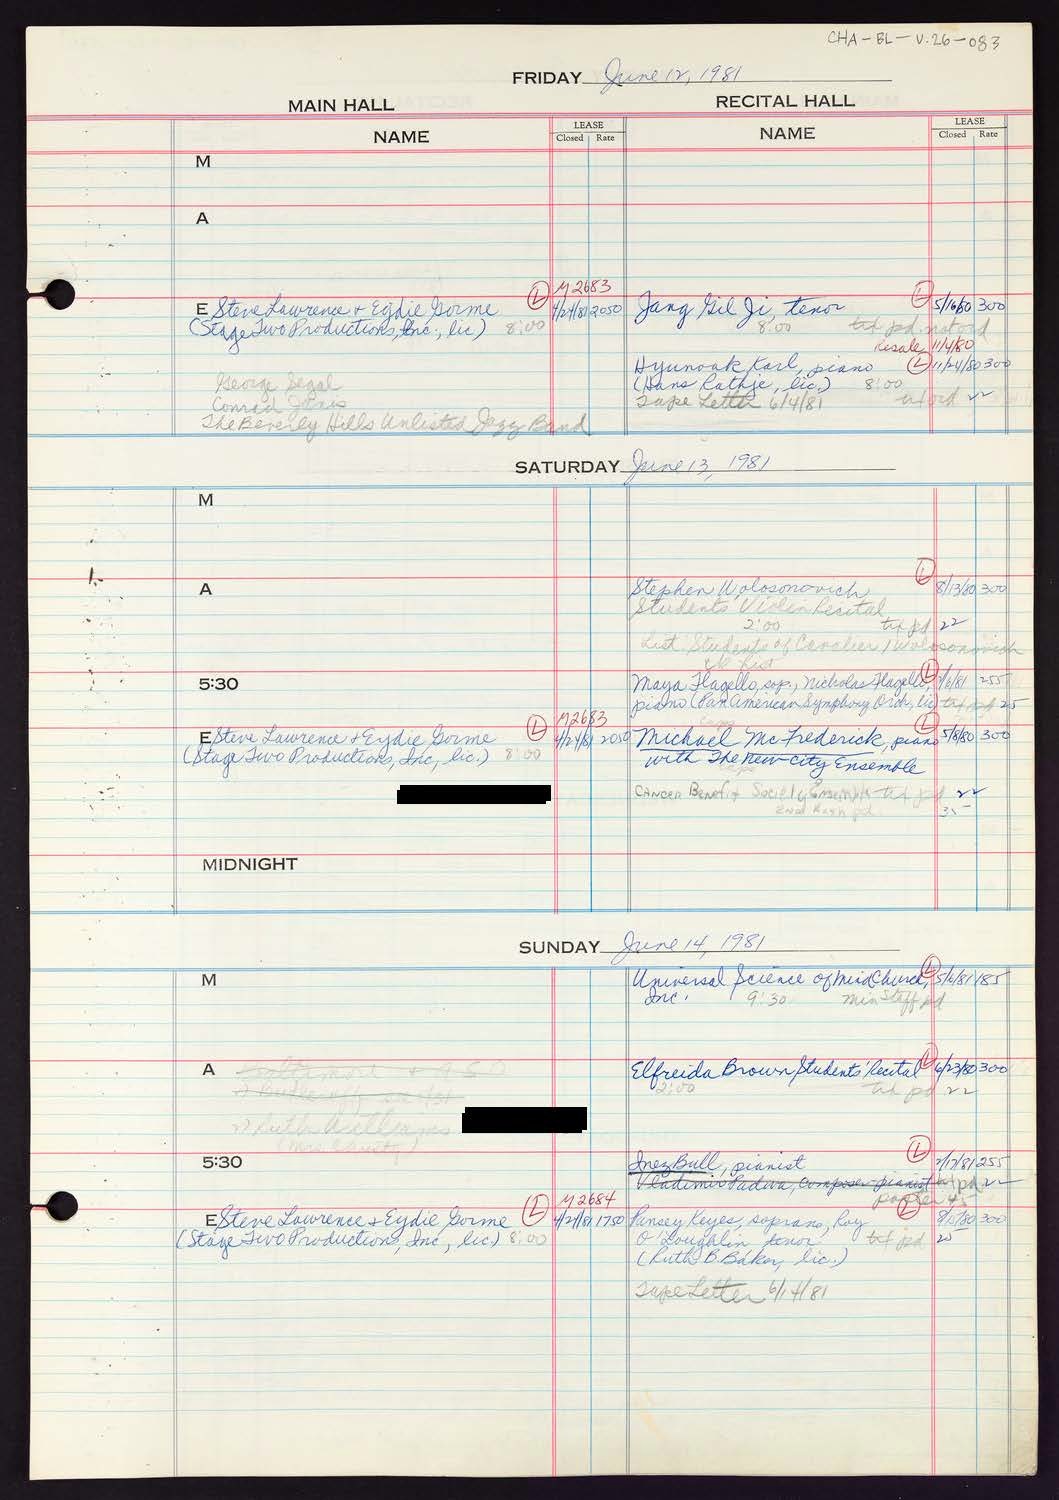 CHA-BL-V.26-083
FRIDAY June 12, 1981
MAIN HALL RECITAL HALL
NAME LEASE Closed Rate NAME LEASE Closed Rate
M
A
L M2683
E Steve Lawrence + Eydie Gorme 4/24/81 2050
(Stage Two Productions, Inc., lic) 8:00
George Segal
Conrad Janis
The Beverly Hills Unlisted Jazz Band
Jang Gil Ji, tenor L 5/16/80 300
8:00 txt pd. not ord
Resale 11/4/80
Hyunoak Karl, piano L 11/24/80 300
(Hans Rathje, lic.) 8:00
Tape Letter 6/4/81 22
SATURDAY June 13, 1981
M
A
Stephen Wolosonovich L 8/13/80 300
Students Violin Recital
2:00 txt pd 22
List Students of Cavalier / Wolosonovich
5:30
Maya Flagello, sop., Nicholas Flagello, L /6/81 255
piano (Pan American Symphony Orch, lic) txt pd 25
L M2683
E Steve Lawrence + Eydie Gorme 4/24/81 2050
(Stage Two Productions, Inc, lic.) 8:00
Michael McFrederick, piano L 5/8/80 300
with The New City Ensemble
CANCER Benefit Society Ensemble txt pd 22
pd. 35
MIDNIGHT
SUNDAY June 14, 1981
M
Universal Science of Mind Church, L 5/6/81 185
Inc. 9:30 Min Staff pd
A
Ruth Williams
Elfreida Brown Students' Recital L 6/23/80 300
2:00 txt pd 22
5:30
Inez Bull, pianist L 2/17/81 255
Vladimir Padwa, composer-pianist txt pd 22
L M2684
E Steve Lawrence + Eydie Gorme 4/24/81 1750
(Stage Two Productions, Inc, lic.) 8:00
Pansey Keyes, soprano, Roy L 300
O'Loughlin tenor txt pd 25
(Ruth B. Baker, lic.)
Tape Letter 6/14/81